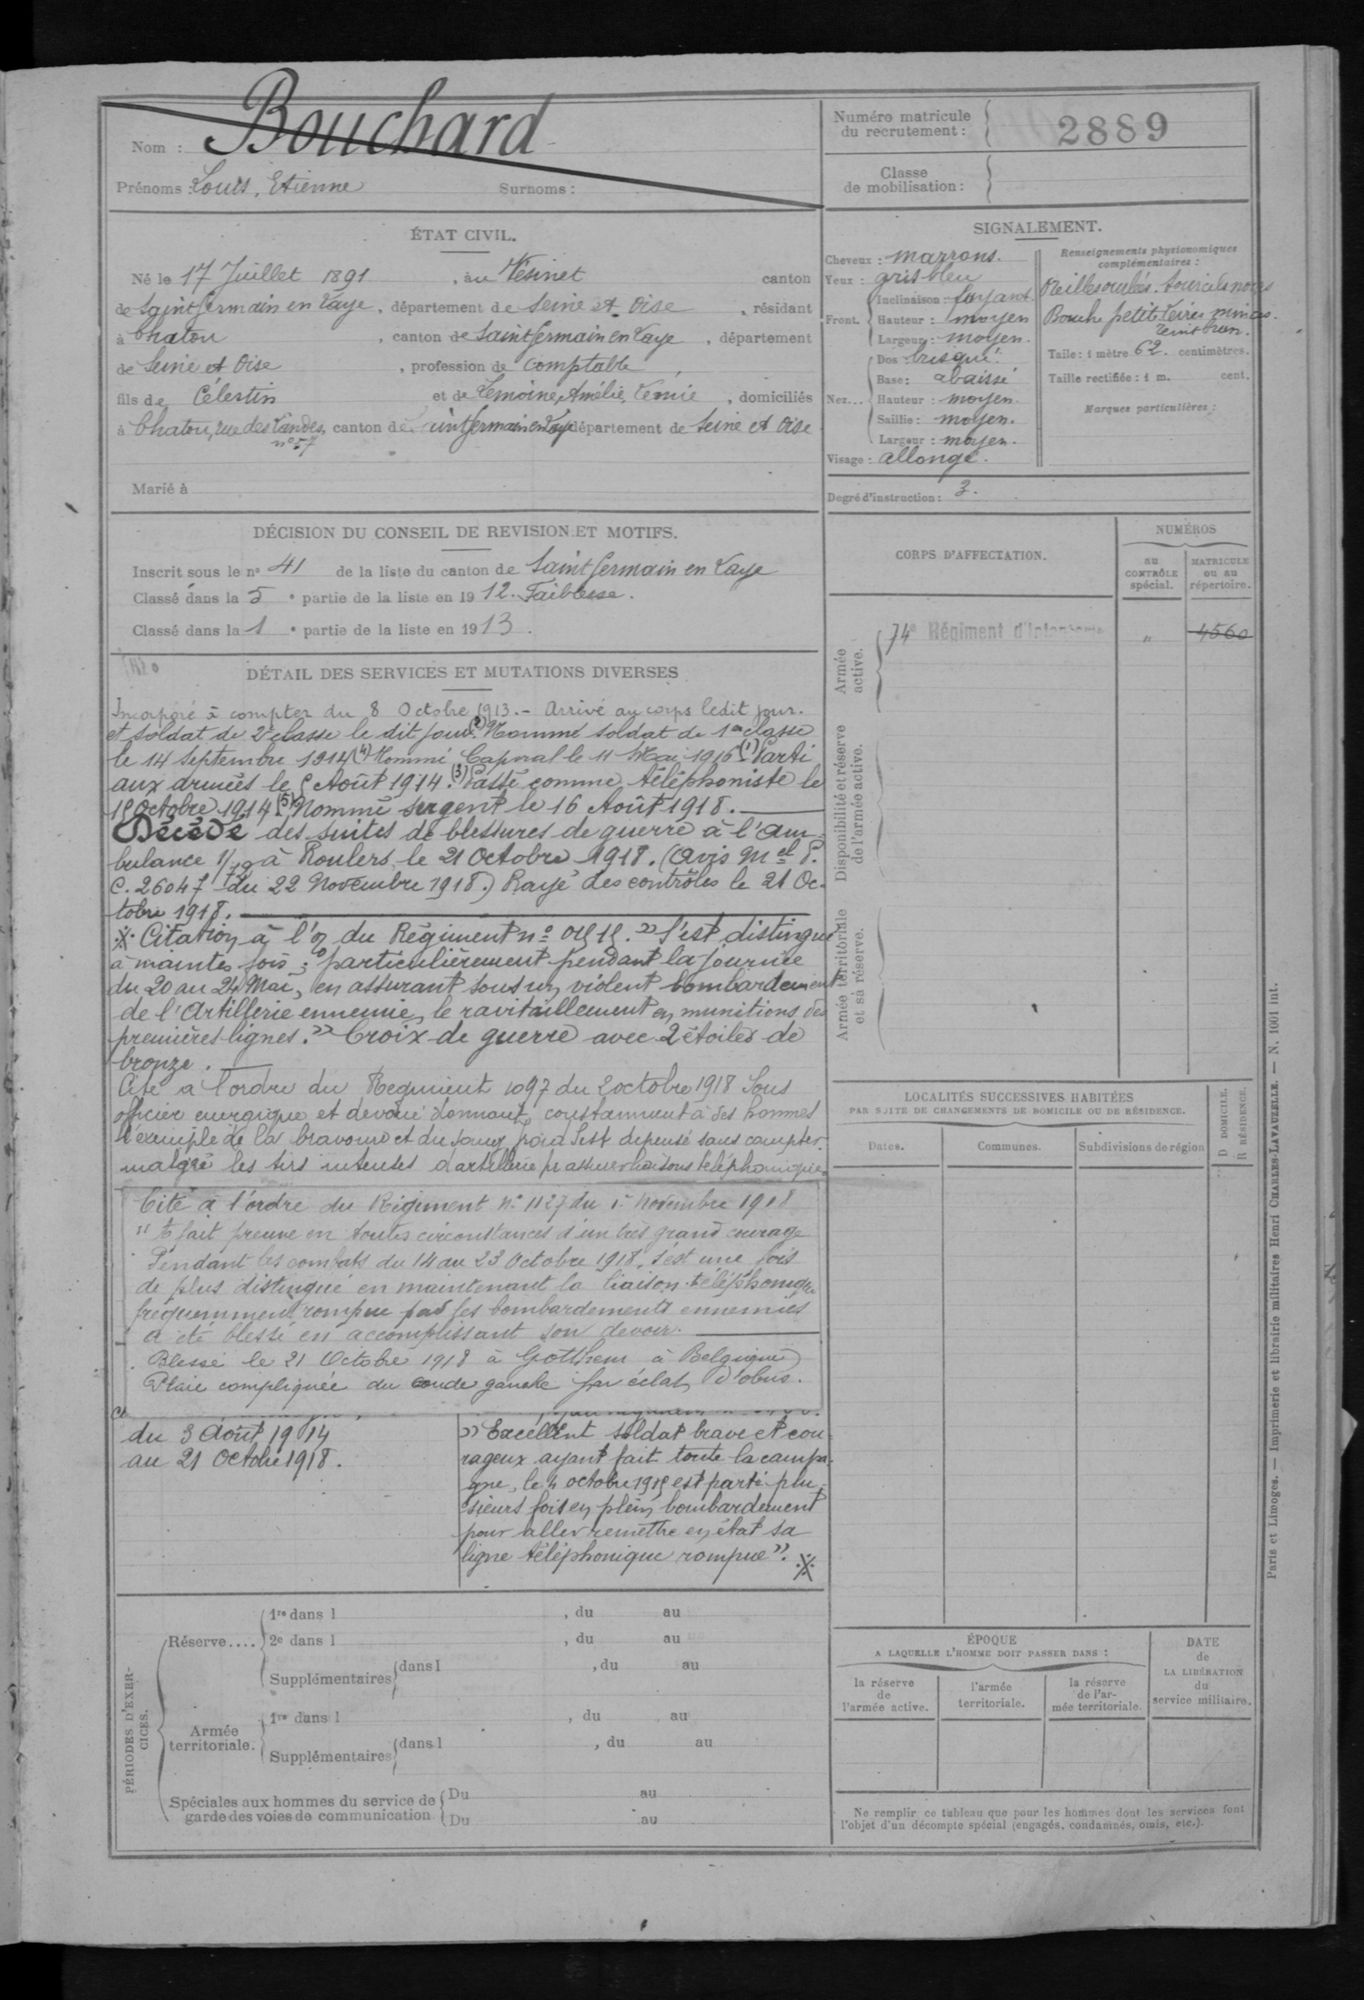 Nom : Bouchard
Prénoms Louis, Etienne Surnoms :
Numéro matricule
du recrutement : 2889
Classe
de mobilisation :
ÉTAT CIVIL.
Né le 17 Juillet 1891, au Vésinet canton
de Saint Germain en Laye, département de Seine et Oise, résidant
à Chatou, canton de Saint Germain en Laye, département
de Seine et Oise, profession de comptable,
fils de Célestin et de Lemoine, Amélie, , domiciliés
à Chatou, rue des Landes, canton de Saint Germain en Laye département de Seine et Oise
n° 57
Marié à
SIGNALEMENT.
Cheveux : marrons.
Yeux : gris bleu
Front. Inclinaison : fuyant
Hauteur : moyen
Largeur : moyen.
Nez... Dos busqué.
Base : abaissé
Hauteur : moyen.
Saillie : moyen.
Largeur : moyen.
Visage : allongé.
Renseignements physionomiques
complémentaires :
Oreilles ourlées. Sourcils noirs
Bouche petite Lèvres minces.
Teint brun.
Taille : 1 mètre 62. centimètres.
Taille rectifiée : 1 m. cent.
Marques particulières :
Degré d'instruction : 3.
DÉCISION DU CONSEIL DE REVISION ET MOTIFS.
Inscrit sous le n° 41 de la liste du canton de Saint Germain en Laye
Classé dans la 5 e partie de la liste en 1912. Faiblesse.
Classé dans la 1 e partie de la liste en 1913.
CORPS D'AFFECTATION.
NUMÉROS
au
CONTRÔLE
spécial.
MATRICULE
ou au
répertoire.
Armée
active.
74e Régiment d'Infanterie " 4560
Disponibilité et réserve
de l'armée active.
Armée territoriale
et sa réserve.
DÉTAIL DES SERVICES ET MUTATIONS DIVERSES
Incorporé à compter du 8 Octobre 1913. - Arrivé au corps ledit jour.
et soldat de 2e classe le dit jour. (2) Nommé soldat de 1re classe
le 14 Septembre 1914 (4) Nommé Caporal le 11 Mai 1916 (1) Parti
aux armées le 5 Août 1914. (3) Passé comme téléphoniste le
15 Octobre 1914 (5) Nommé sergent le 16 Août 1918.
Décédé des suites de blessures de guerre à l'am-
bulance à Roulers, le 21 Octobre 1918. (Avis Mel P.
C. 26047 du 22 Novembre 1918.) Rayé des contrôles le 21 Oc-
tobre 1918.
※ Citation à l'o/ du Régiment n° " S'est distingué
à maintes fois ; particulièrement pendant la journée
du 20 au 24 Mai, en assurant sous un violent bombardement
de l'Artillerie ennemie, le ravitaillement en munitions des
premières lignes. " Croix de guerre avec 2 étoiles de
bronze.
Cité à l'ordre du Régiment 1097 du 2 octobre 1918 Sous
officier énergique et dévoué donnant constamment à ses hommes
l'exemple de la bravoure et du sang froid S'est dépensé sans compter
malgré les tirs intenses d'artillerie pr assurer liaisons téléphoniques
Cité à l'ordre du Régiment n° 1127 du 1er Novembre 1918
" A fait preuve en toutes circonstances d'un très grand courage
Pendant les combats du 14 au 23 Octobre 1918, s'est une fois
de plus distingué en maintenant la liaison téléphonique
fréquemment rompue par les bombardements ennemies
a été blessé en accomplissant son devoir.
Blessé le 21 Octobre 1918 à Gotthem à Belgique)
Plaie compliquée du coude gauche par éclats d'obus.
du 3 Août 1914
au 21 Octobre 1918.
" Excellent soldat brave et cou-
rageux ayant fait toute la campa-
gne, le 4 octobre 1915 est parti plu-
sieurs fois en plein bombardement
pour aller remettre en état sa
ligne téléphonique rompue ". ※
LOCALITÉS SUCCESSIVES HABITÉES
PAR SUITE DE CHANGEMENTS DE DOMICILE OU DE RÉSIDENCE.
Dates. Communes. Subdivisions de région D DOMICILE. R RÉSIDENCE.
PÉRIODES D'EXER-
CICES.
Réserve.... 1re dans l , du au
2e dans l , du au
Supplémentaires dans l , du au
Armée
territoriale. 1re dans l , du au
Supplémentaires dans l , du au
Spéciales aux hommes du service de
garde des voies de communication
Du au
Du au
ÉPOQUE
A LAQUELLE L'HOMME DOIT PASSER DANS :
la réserve
de
l'armée active.
l'armée
territoriale.
la réserve
de l'ar-
mée territoriale.
DATE
de
LA LIBÉRATION
du
service militaire.
Ne remplir ce tableau que pour les hommes dont les services font
l'objet d'un décompte spécial (engagés, condamnés, omis, etc.).
Paris et Limoges. — Imprimerie et librairie militaires Henri CHARLES-LAVAUZELLE. — N. 1001 int.